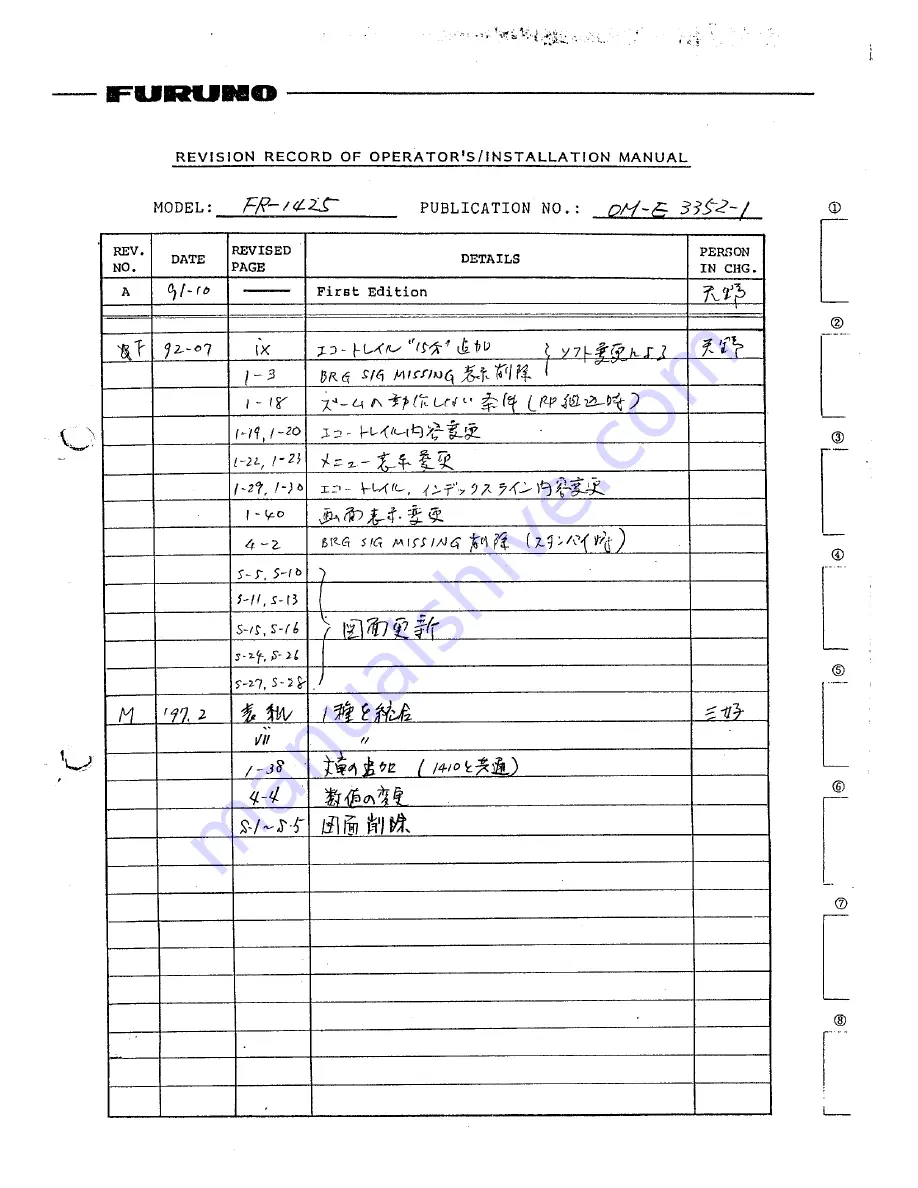 FURUNO
REVISION RECORD OF OPERATOR'S/INSTALLATION MANUAL
MODEL: FR-1425 PUBLICATION NO.: OM-E 3352-1
①
REV. NO. DATE REVISED PAGE DETAILS PERSON IN CHG.
A 91-10 First Edition 天野
②
F 92-07 ix エコートレイル "15分" 追加 ソフト変更による 天野
1-3 BRG SIG MISSING 表示削除
1-18 ズームの動作しない条件 (RP組込時)
1-19, 1-20 エコートレイル内容変更
③
1-22, 1-23 メニュー表示変更
1-29, 1-30 エコートレイル, インデックスライン内容変更
1-40 画面表示変更
4-2 BRG SIG MISSING 削除 (スタンバイ時)
④
S-5, S-10
S-11, S-13
S-15, S-16 図面更新
S-24, S-26
⑤
S-27, S-28
M '97.2 表紙 1種を統合 三好
vii 〃
1-38 文章の追加 (1410と共通)
⑥
4-4 数値の変更
S-1~S-5 図面削除
⑦
⑧
manualshive.com